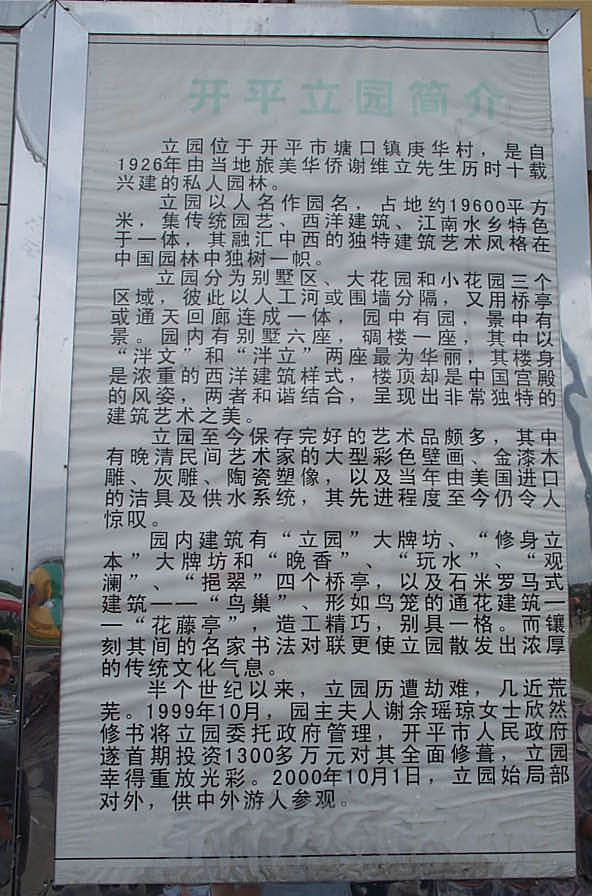 开平立园简介
立园位于开平市塘口镇庚华村，是自
1926年由当地旅美华侨谢维立先生历时十载
兴建的私人园林。
立园以人名作园名，占地约19600平方
米，集传统园艺、西洋建筑、江南水乡特色
于一体，其融汇中西的独特建筑艺术风格在
中国园林中独树一帜。
立园分为别墅区、大花园和小花园三个
区域，彼此以人工河或围墙分隔，又用桥亭
或通天回廊连成一体，园中有园，景中有
景。园内有别墅六座，碉楼一座，其中以
“泮文”和“泮立”两座最为华丽，其楼身
是浓重的西洋建筑样式，楼顶却是中国宫殿
的风姿，两者和谐结合，呈现出非常独特的
建筑艺术之美。
立园至今保存完好的艺术品颇多，其中
有晚清民间艺术家的大型彩色壁画、金漆木
雕、灰雕、陶瓷塑像，以及当年由美国进口
的洁具及供水系统，其先进程度至今仍令人
惊叹。
园内建筑有“立园”大牌坊、“修身立
本”大牌坊和“晚香”、“玩水”、“观
澜”、“挹翠”四个桥亭，以及石米罗马式
建筑——“鸟巢”、形如鸟笼的通花建筑—
—“花藤亭”，造工精巧，别具一格。而镶
刻其间的名家书法对联更使立园散发出浓厚
的传统文化气息。
半个世纪以来，立园历遭劫难，几近荒
芜。1999年10月，园主夫人谢余瑶琼女士欣然
修书将立园委托政府管理，开平市人民政府
遂首期投资1300多万元对其全面修葺，立园
幸得重放光彩。2000年10月1日，立园始局部
对外，供中外游人参观。